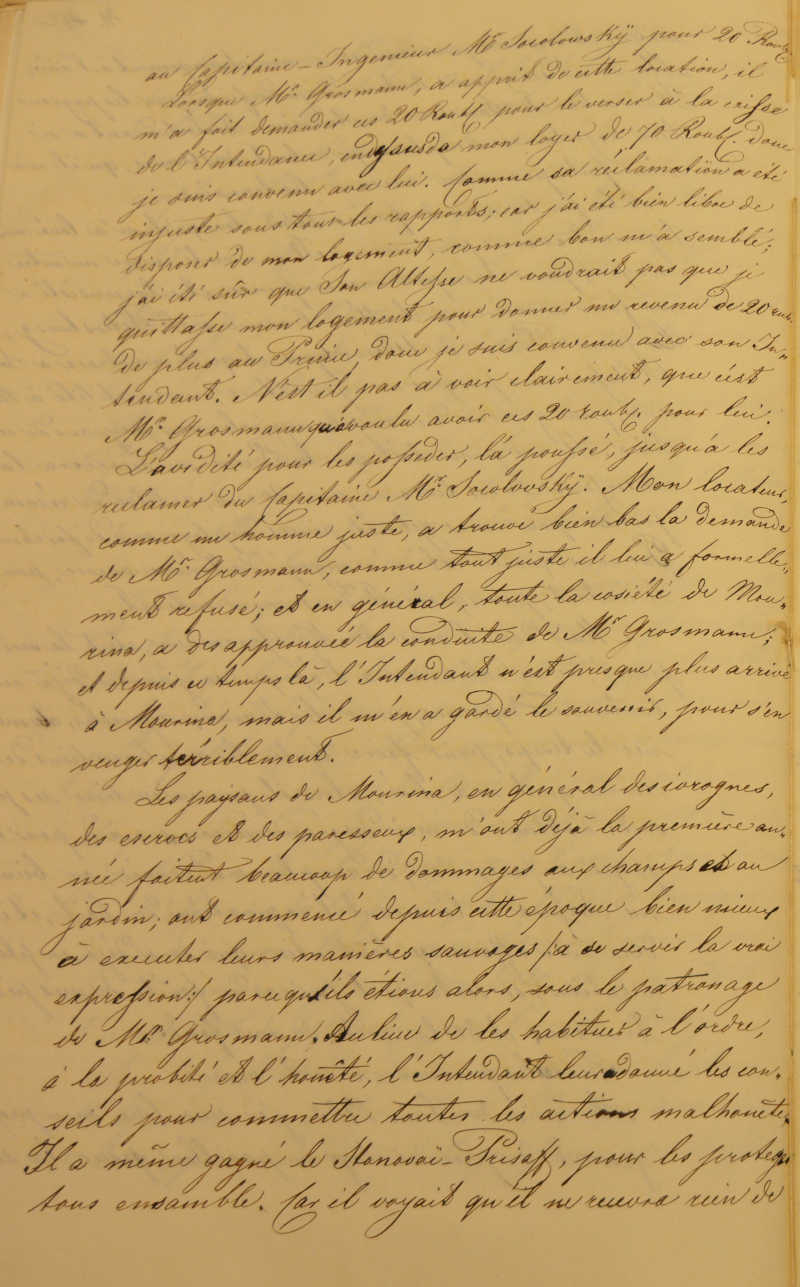 au Capitaine – Ingenieur Mr Socolowskÿ pour 20 Roub.
Lorsque Mr. Grosmann, a apprit de cette location, il
m'a fait demander ces 20 Roub. pour le verser à la caisse
de l'Intendance, endessusda mon loyer de 70 Roub. dont
je suis convenu avec lui. Comme sa réclamation a été
injuste sous tous les rapports; car j'ai été bien libre de
disposer de mon logement, comme bon m'a semblé;
j'ai été sûr que Son Altesse ne voudrait pas que je
quittasse mon logement pour donner un revenu de 20 roub.
de plus au Prince, dont je suis convenu avec son In-
tendant. N'est il pas à voir clairement, que c'est
Mr. Grosmann qui a voulu avoir ces 20 roub. pour lui.
L'avidité pour les posseder, l'a poussé, jusqu'à les
reclamer du Capitaine Mr. Socolovskÿ. Mon locateur,
comme un homme juste, a trouvé bien bas la demande
de Mr. Grosmann, comme tout juste il lui a formelle-
ment refusé; et en général, toute la cosiété de Mou-
rina, a desapprouvée la conduite de Mr Grosmann;
et depuis ce temps là, l'Intendant n'est presque plus arrivé
à Mourina, mais il m'en a gardé le souvenir, pour s'en
venger térriblement.
Les paysans de Mourina, en général des ivrognes,
des escrocs et des paresseux, m'ont déjà la première an-
née faitent beaucoup de dommages aux champs et au
jardin; ont commencé depuis cette époque bien mieux
à executer leurs manières sauvages /:à se servir la vrai
expression:/ parcequ'ils étions alors, sous le patronage
de Mr. Grosmann. Aulieu de les habituer à l'ordre,
à la probité et l'honêté, l'Intendant leur a donné les con-
seils pour commettre toutes les actions malhonête.
Il a même gagné le Stanovoï – Prisaff, pour les proteger
tous ensamble. Car il voyait qu'il ne recevra rien de